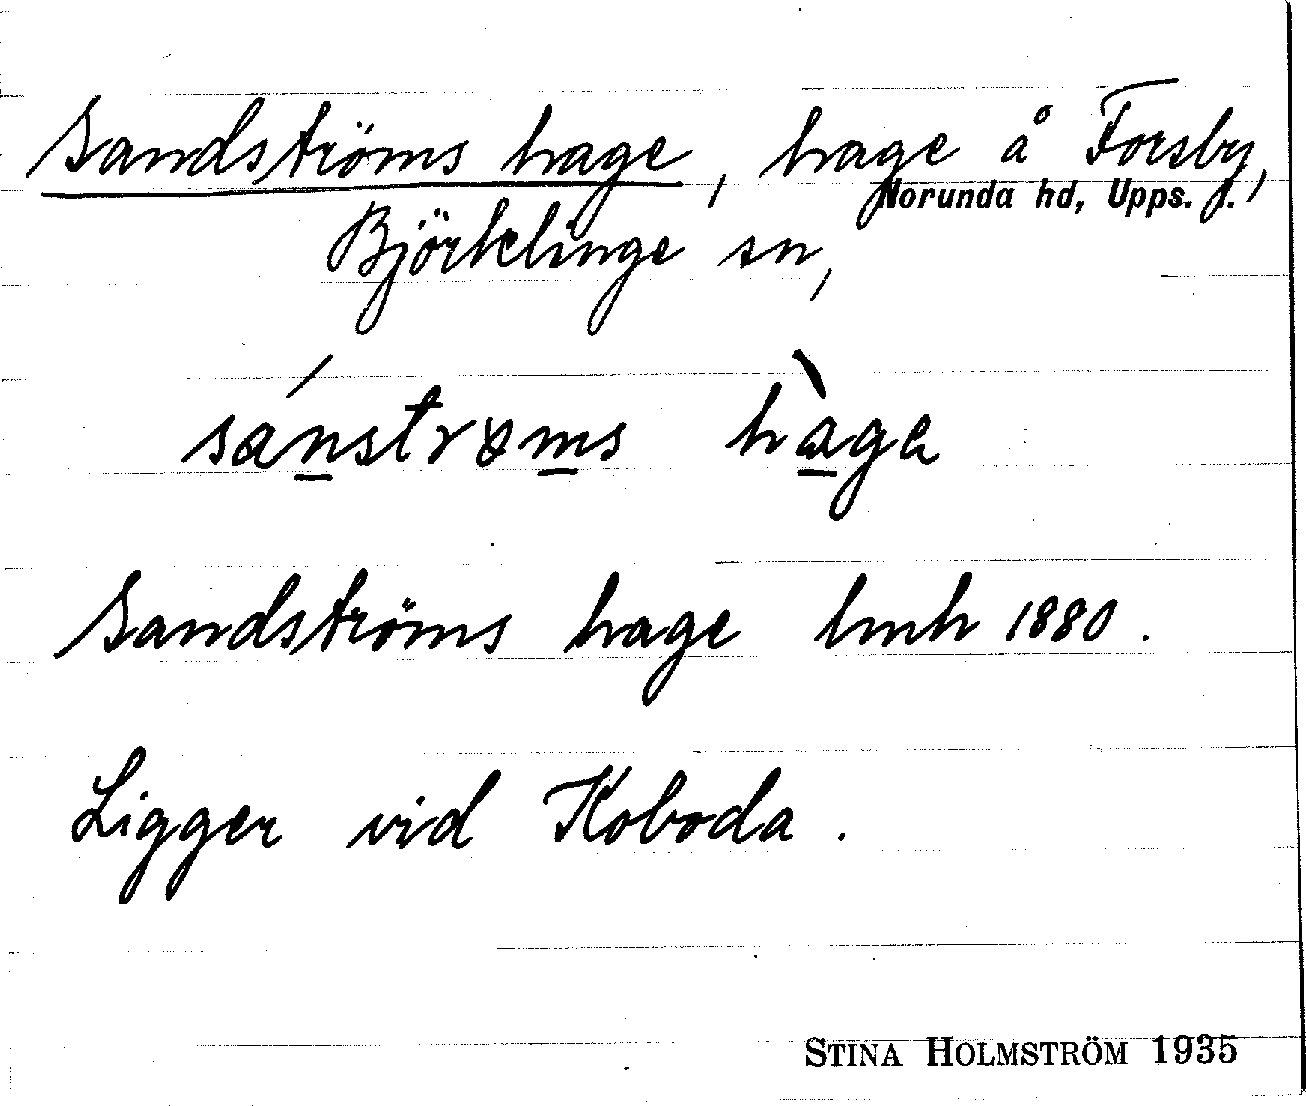 Sandströms hage, hage å Forsby,
Norunda hd, Upps. l.
Björklinge sn,
sánstrøms hàga
Sandströms hage hmh 1880.
Ligger vid Koboda.
STINA HOLMSTRÖM 1935